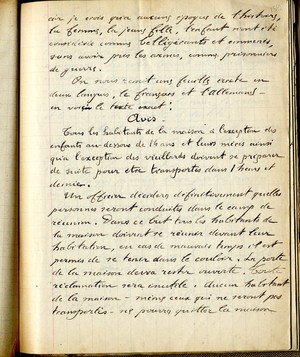 car je crois qu'à aucune époque de l'histoire,
la femme, la jeune fille, l'enfant n'ont été
considérés comme belligérants et emmenés,
sans avoir pris les armes, comme prisonniers
de guerre.
On nous remit une feuille écrite en
deux langues, le français et l'allemand –
en voici le texte exact :
Avis.
Tous les habitants de la maison à l'exception des
enfants au-dessous de 14 ans et leurs mères ainsi
qu'à l'exception des vieillards doivent se préparer
de suite pour être transportés dans 1 heure et
demie.
Un officier décidera définitivement quelles
personnes seront conduites dans le camp de
réunion. Dans ce but tous les habitants de
la maison doivent se réunir devant leur
habitation, en cas de mauvais temps il est
permis de se tenir dans le couloir. La porte
de la maison devra rester ouverte. Toute
réclamation sera inutile. Aucun habitant
de la maison – même ceux qui ne seront pas
transportés – ne pourra quitter la maison